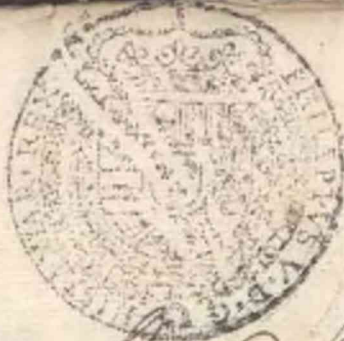 PHILIPPUS V. D. G.
HISPANIAR. REX